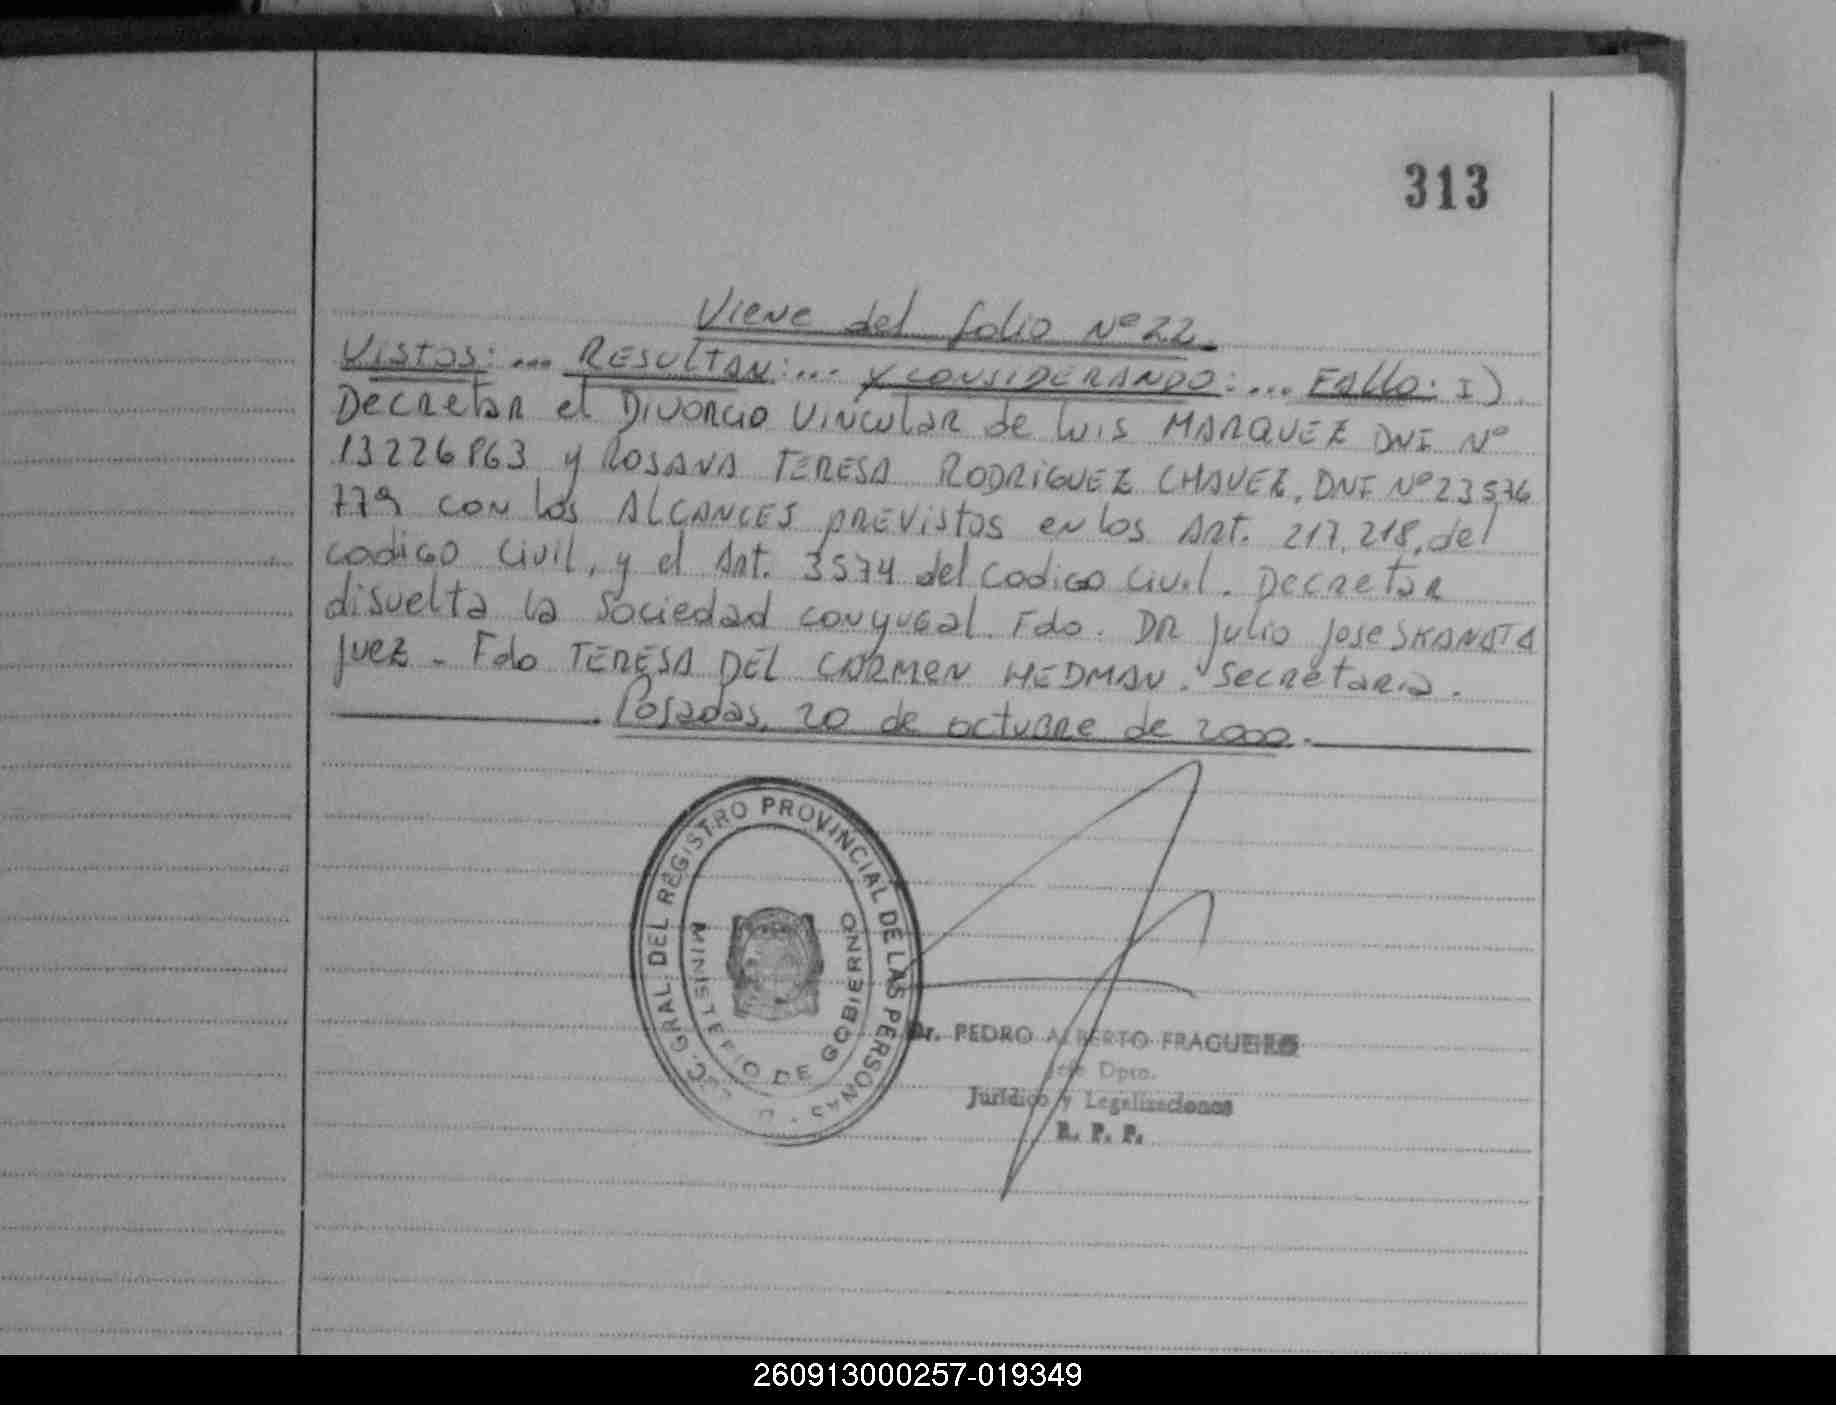 313
Viene del folio Nº 22.
Vistos: ... RESULTAN: ... Y CONSIDERANDO: ... Fallo: I)
Decretar el Divorcio Vincular de Luis MARQUEZ DNI Nº
13226863 y ROSANA TERESA RODRIGUEZ CHAVEZ, DNI Nº 23576
779 con los ALCANCES previstos en los Art. 217, 218, del
codigo civil, y el Art. 3574 del codigo civil. Decretar
disuelta la sociedad conyugal. Fdo. DR Julio Jose SKANATA
Juez - Fdo TERESA DEL CARMEN HEDMAN. Secretaria.
Posadas, 20 de octubre de 2000.
C. GRAL. DEL REGISTRO PROVINCIAL DE LAS PERSONAS
MINISTERIO DE GOBIERNO
Dr. PEDRO ALBERTO FRAGUEIRO
Jefe Dpto.
Jurídico y Legalizaciones
R. P. P.
260913000257-019349